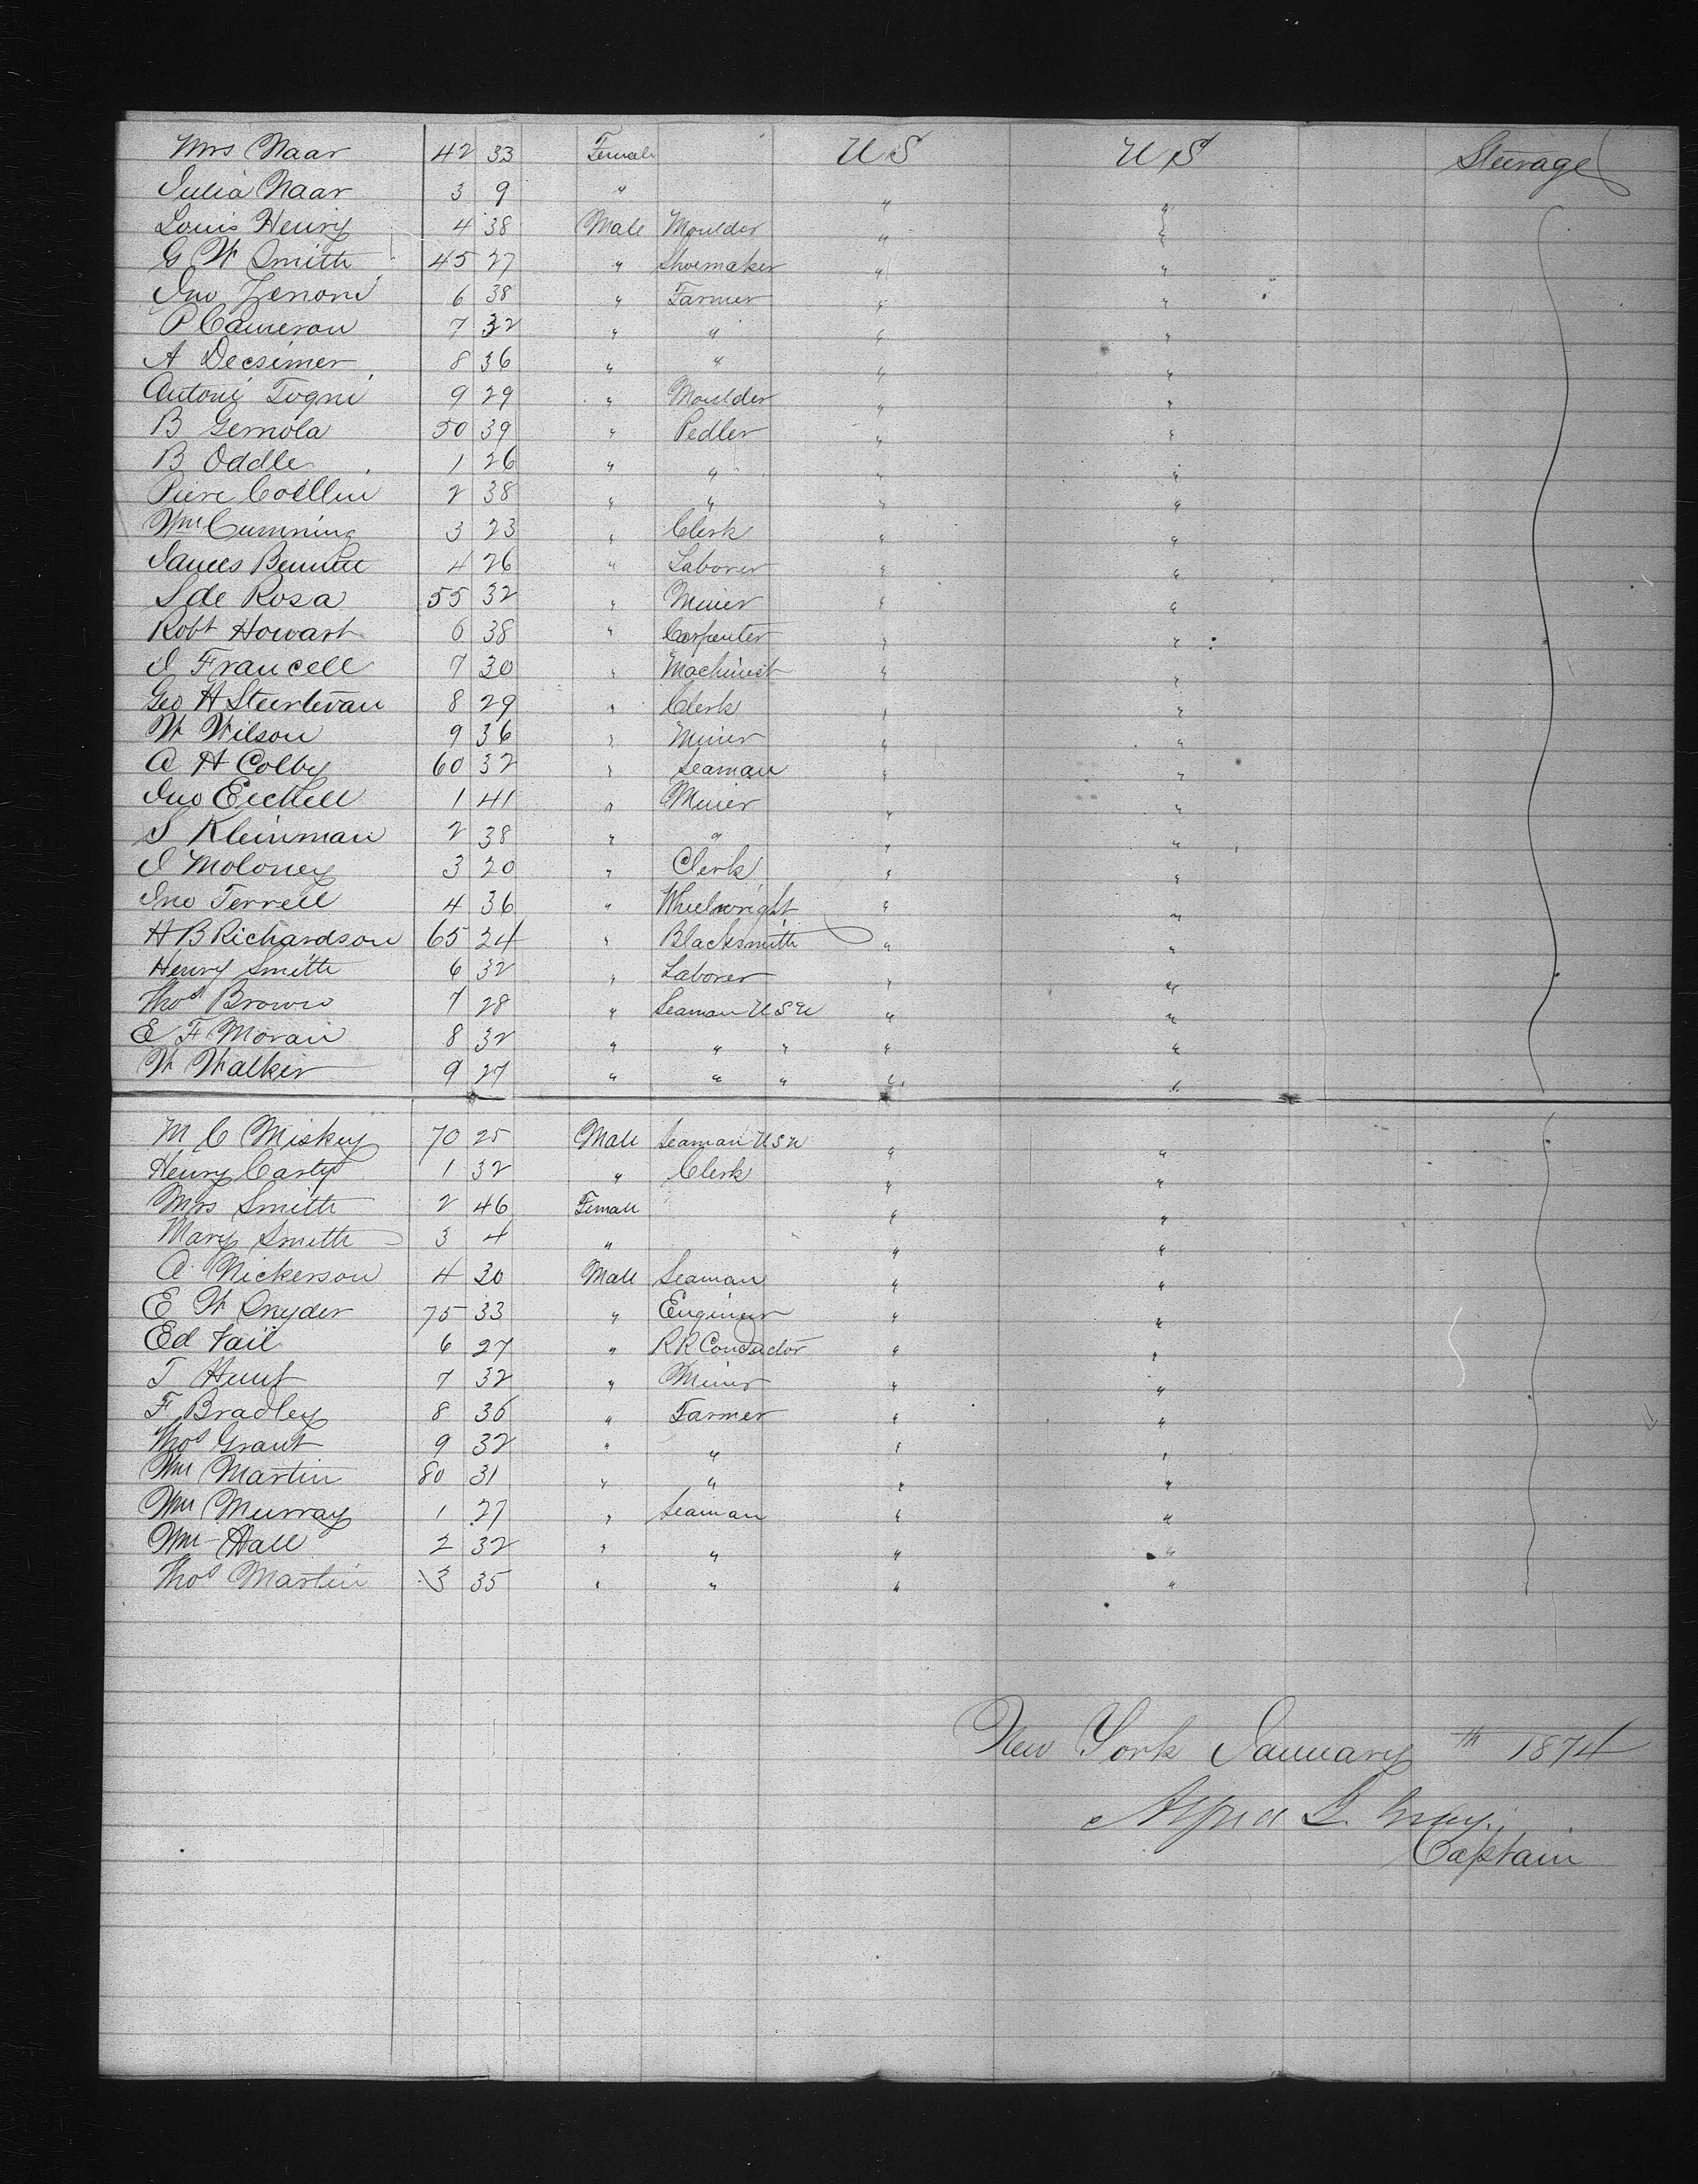 Mrs Naar 42 33 Female U S U S Steerage
Julia Naar 3 9 " " "
Louis Henry 4 38 Male Moulder " "
G W Smith 45 27 " Shoemaker " "
Jno Zenoni 6 38 " Farmer " "
P Cameron 7 32 " " " "
A Decsimer 8 36 " " " "
Antoni Togni 9 29 " Moulder " "
B Gemola 50 39 " Pedler " "
B Oddle 1 26 " " " "
Piere Coellin 2 38 " " " "
Wm Cumming 3 23 " Clerk " "
James Bennett 4 26 " Laborer " "
S de Rosa 55 32 " Miner " "
Robt Howart 6 38 " Carpenter " "
J Francell 7 30 " Machinist " "
Geo H Sturtevan 8 29 " Clerk " "
W Wilson 9 36 " Miner " "
A H Colby 60 32 " Seaman " "
Jno Eickell 1 41 " Miner " "
S Kleinman 2 38 " " " "
J Moloney 3 20 " Clerk " "
Jno Terrell 4 36 " Wheelwright " "
H B Richardson 65 24 " Blacksmith " "
Henry Smith 6 32 " Laborer " "
Thos Brown 7 28 " Seaman U S N " "
E F Moran 8 32 " " " " "
W Walker 9 27 " " " " "
M C Miskey 70 25 Male Seaman U S N " "
Henry Carty 1 32 " Clerk " "
Mrs Smith 2 46 Female " "
Mary Smith 3 4 " " "
A Nickerson 4 30 Male Seaman " "
E W Snyder 75 33 " Engineer " "
Ed Vail 6 27 " R R Conductor " "
T Hunt 7 32 " Miner " "
F Bradley 8 36 " Farmer " "
Thos Grant 9 32 " " " "
Wm Martin 80 31 " " " "
Wm Murray 1 27 " Seaman " "
Wm Hall 2 32 " " " "
Thos Martin 3 35 " " " "
New York January th 1874
G. Gray.
Captain